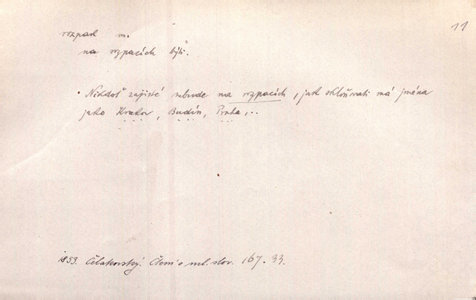 11
rozpak m.
na rozpacích býti.
• Nikdož zajisté nebude na rozpacích, jak skloňovati má jména
jako Krakov, Budín, Praha,..
1853. Čelakovský. Čtení o ml. slov. 167. 33.